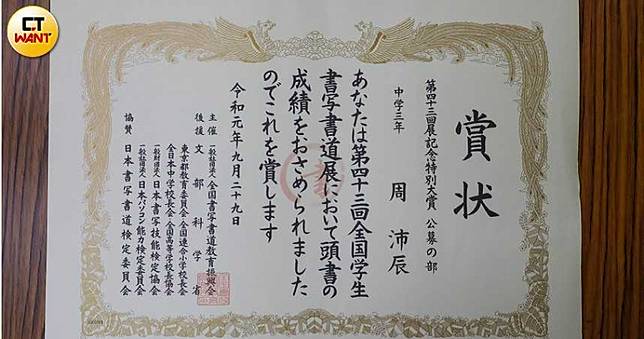 CT WANT
賞状
第四十三回展記念特別大賞 公募の部
中学三年 周 沛辰
あなたは第四十三回全国学生
書写書道展において頭書の
成績をおさめられました
のでこれを賞します
令和元年九月二十九日
主催 一般社団法人 全国書写書道教育振興会
後援 文部科学省
東京都教育委員会・全国連合小学校長会
全日本中学校長会・全国高等学校長協会
一般財団法人 日本書写技能検定協会
一般社団法人 日本パソコン能力検定委員会
協賛 日本書写書道検定委員会